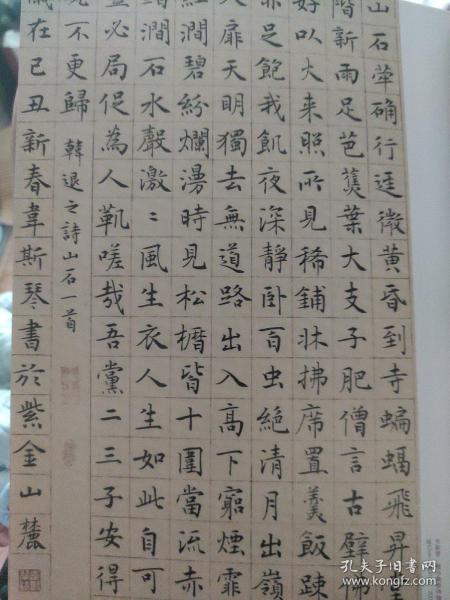 山石犖确行逕微黃昏到寺蝙蝠飛昇堂
階新雨足芭蕉葉大支子肥僧言古壁佛
好以火来照所見稀鋪牀拂席置羹飯踈
亦足飽我飢夜深靜卧百虫絶清月出嶺
入扉天明獨去無道路出入高下窮煙霏
紅澗碧紛爛漫時見松櫪皆十圍當流赤
澗石水聲激〻風生衣人生如此自可
豈必局促為人鞿嗟哉吾黨二三子安得
不更歸
韓退之詩山石一首
歲在己丑新春韋斯琴書於紫金山麓
孔夫子旧书网